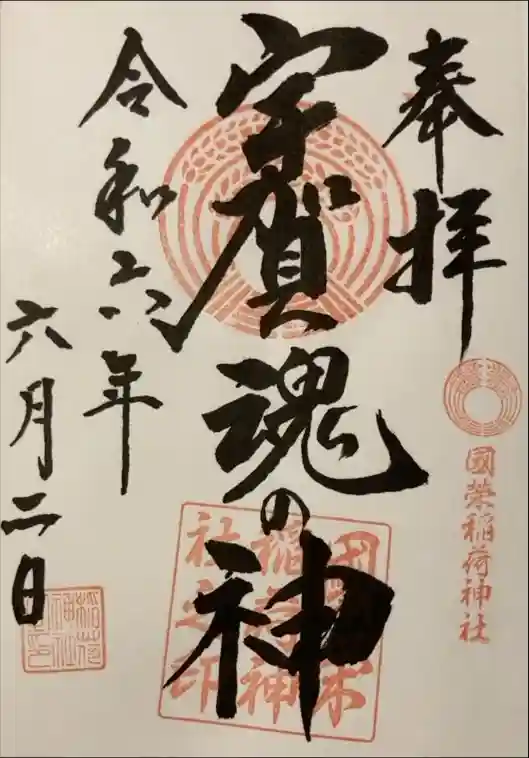 奉拝
國榮稲荷神社
宇賀魂の神
國榮稲荷神社之印
令和六年
六月二日
稲荷神社